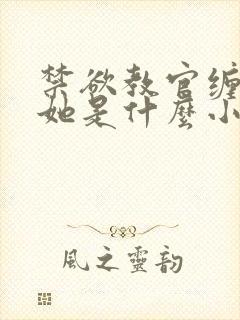 禁欲教官缠
她是什麼小
風之靈韵